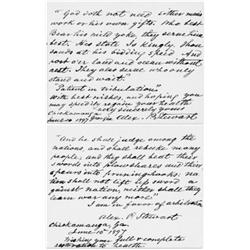 "God doth not need either man's
work or his own gifts. Who best
Bear his mild yoke, they serve him
best. His state Is kingly. Thou-
sands at his bidding speed and
post o'er land and ocean without
rest. They also serve who only
stand and wait"
"Patient in tribulation"
With best wishes, and hoping you
may speedily regain your health
very sincerely yours
Chickamauga
Alex. P. Stewart.
"And he shall judge among the
nations and shall rebuke many
people; and they shall beat their
swords into plowshares and their
spears into pruninghooks; na
tion shall not lift up sword a
gainst nation, neither shall they
learn war any more"
I am in favor of arbitra
Alex P Stewart
Chickamauga, Ga.
June 10th 1897
Wishing you full & complete
restoration to health